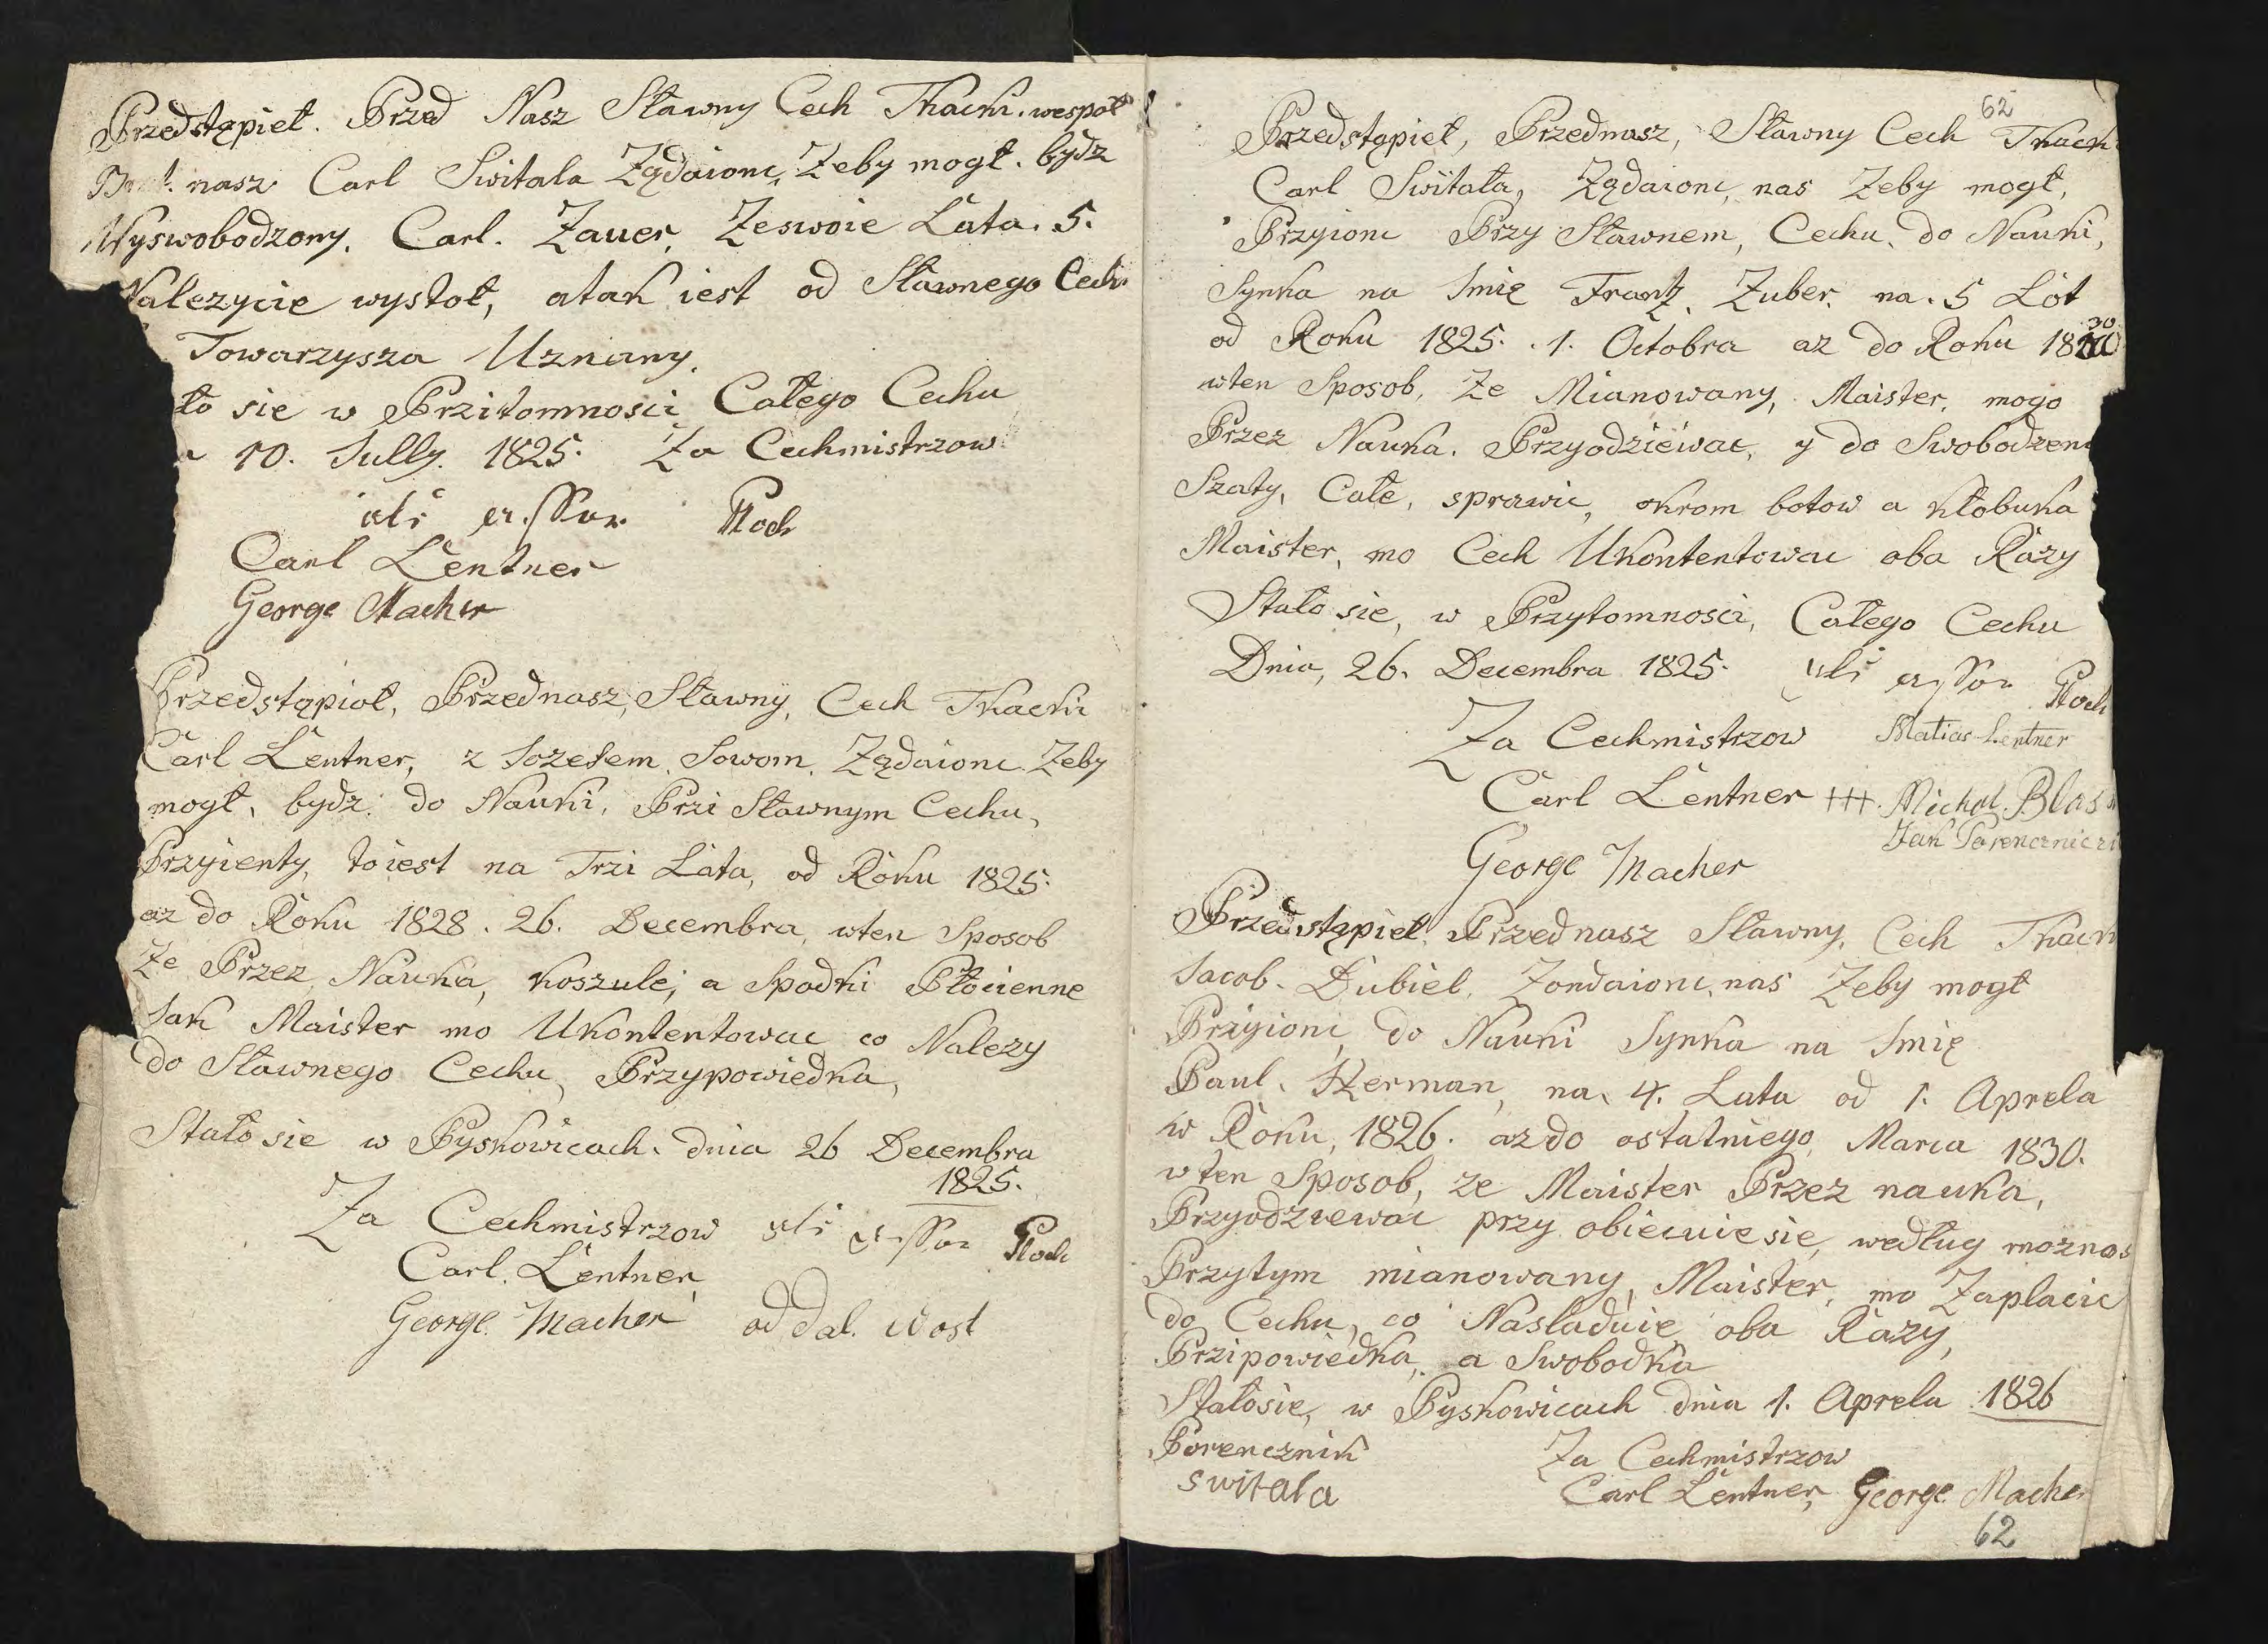 Przedstąpieł. Przed Nasz Sławny Cech Tkacki. wespoł
nasz Carl Switala Żądaionc, Żeby mogł. bydz
Wyswobodzony. Carl. Zauer. Zeswoie Lata. 5.
Nalezycie wystoł, atak iest od Sławnego Cechu
Towarzysza Uznany.
ło sie w Przitomnosci Całego Cechu
10. Jully. 1825. Za Cechmistrzow
als assessor Ploch
Carl Lentner
George Macher
Przedstąpioł, Przednasz, Sławny, Cech Tkacki
Carl Lentner, z Iozefem. Sowom. Żądaionc. Zeby
mogł, bydz. do Nauki, Przi Sławnym Cechu,
Przyienty, toiest na Trzi Lata, od Roku 1825.
az do Roku 1828. 26. Decembra, wten Sposob
Ze Przez, Nauka, koszule, a Spodki Płocienne
Iak Maister mo Ukontentowac co Nalezy
do Sławnego Cechu, Przypowiedka,
Stało sie w Pyskowicach. dnia 26 Decembra
1825.
Za Cechmistrzow als assessor Ploch
Carl. Lentner
George. Macher od dal. Wost
62
Przedstąpieł, Przednasz, Sławny Cech Tkacki
Carl Switała, Żądaionc, nas Zeby mogł,
Przyionc Przy Sławnem, Cechu, do Nauki,
Synka na Imię Frantz. Zuber. na. 5 Lot
30
od Roku 1825. 1. Octobra az do Roku 18
wten Sposob, Ze Mianowany, Maister, mogo
Przez Nauka. Przyodziewac, y do Swobodzeni
Szaty, Całe, sprawic, okrom botow a kłobuka
Maister, mo Cech Ukontentowac oba Razy
Stało sie, w Przytomnosci, Całego Cechu
Dnia, 26. Decembra 1825. als assessor Ploch
Za Cechmistrzow Matias Lentner
Carl Lentner +++. Michal. Blas
George Macher
Przedstąpieł Przednasz Sławny, Cech Tkack
Iacob. Dubiel. Żondaionc, nas Zeby mogł
Prziyionc, do Nauki Synka na Imię
Paul. Herman, na, 4. Lata od 1. Aprela
w Roku, 1826. azdo ostatniego, Marca 1830.
wten Sposob, ze Maister Przez nauka,
Przyodziewac przy obiecuie sie, według moznos
Przytym mianowany, Maister, mo Zaplacic
do Cechu, co Nasladuie oba Razy,
Przipowiedka, a Swobodka
Stałosie, w Pyskowicach dnia 1. Aprela 1826
Porencznik Za Cechmistrzow
switala Carl Lentner, George. Macher
62